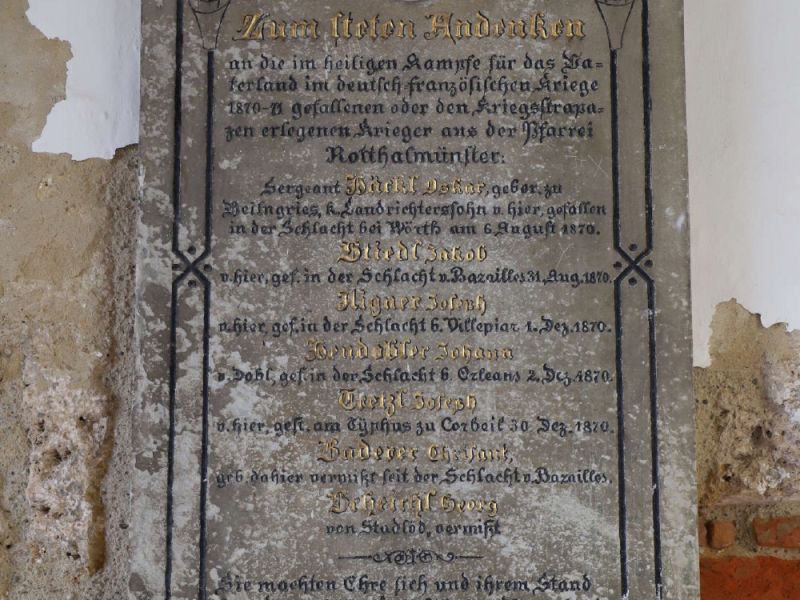 Zum steten Andenken
an die im heiligen Kampfe für das Va-
terland im deutsch-französischen Kriege
1870-71 gefallenen oder den Kriegsstrapa-
zen erlegenen Krieger aus der Pfarrei
Rotthalmünster:
Sergeant Häckl Oskar, gebor. zu
Beilngries, k. Landrichterssohn v. hier, gefallen
in der Schlacht bei Wörth am 6. August 1870.
Stiedl Jakob
v. hier, gef. in der Schlacht v. Bazailles 31. Aug. 1870.
Aigner Joseph
v. hier, gef. in der Schlacht b. Villepiar 1. Dez. 1870.
Johann
v. Dobl, gef. in der Schlacht b. Orleans 2. Dez. 1870.
Joseph
v. hier, gest. am Typhus zu Corbeil 30. Dez. 1870.
Baderer Chrisant,
geb. dahier vermißt seit der Schlacht v. Bazailles.
Georg
von Stadlöd, vermißt
Sie machten Ehre sich und ihrem Stand